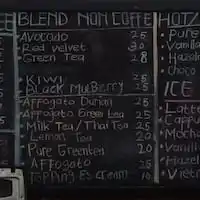 BLEND NON COFFE
Avocado 25
Red velvet 30
Green Tea 28
Kiwi 25
Black MulBerry 25
Affogato Durian 25
Affogato Green tea 25
Milk Tea / Thai Tea 25
Lemon Tea 20
Pure Greentea 20
Affogato 25
Topping Es cream 10
HOT
Pure
Vanilla
Hazeln
Choco
ICE
Latte
Cappu
Mocha
Vanill
Hazel
Vietn